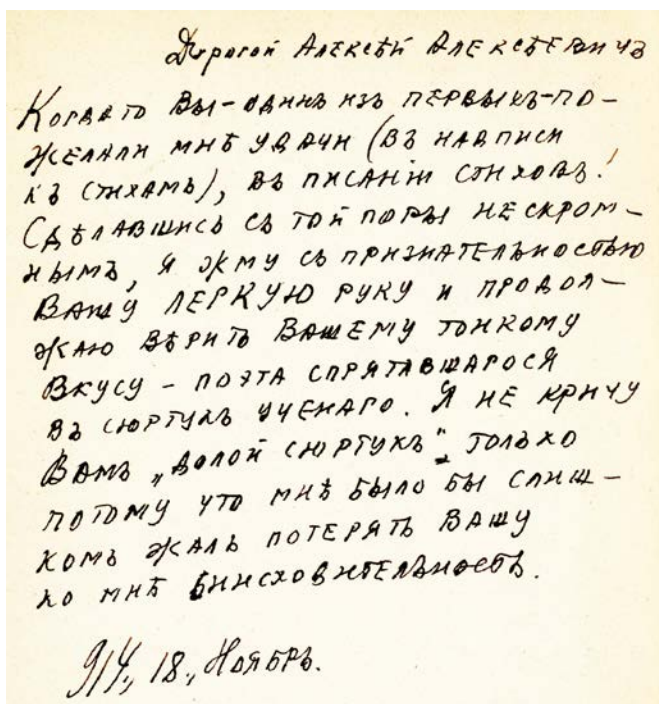 Дорогой Алексѣй Алексѣевичъ
Когда то вы-одинъ изъ первыхъ-по-
желали мнѣ удачи (въ надписи
къ стихамъ), въ писаніи стиховъ!
Сдѣлавшись съ той поры нескром-
нымъ, я жму съ признательностью
Вашу легкую руку и продол-
жаю вѣрить Вашему тонкому
вкусу – поэта спрятавшагося
въ сюртукъ ученаго. Я не кричу
Вамъ „долой сюртукъ" только
потому что мнѣ было бы слиш-
комъ жаль потерять Вашу
ко мнѣ снисходительность.
914., 18., Ноябрь.